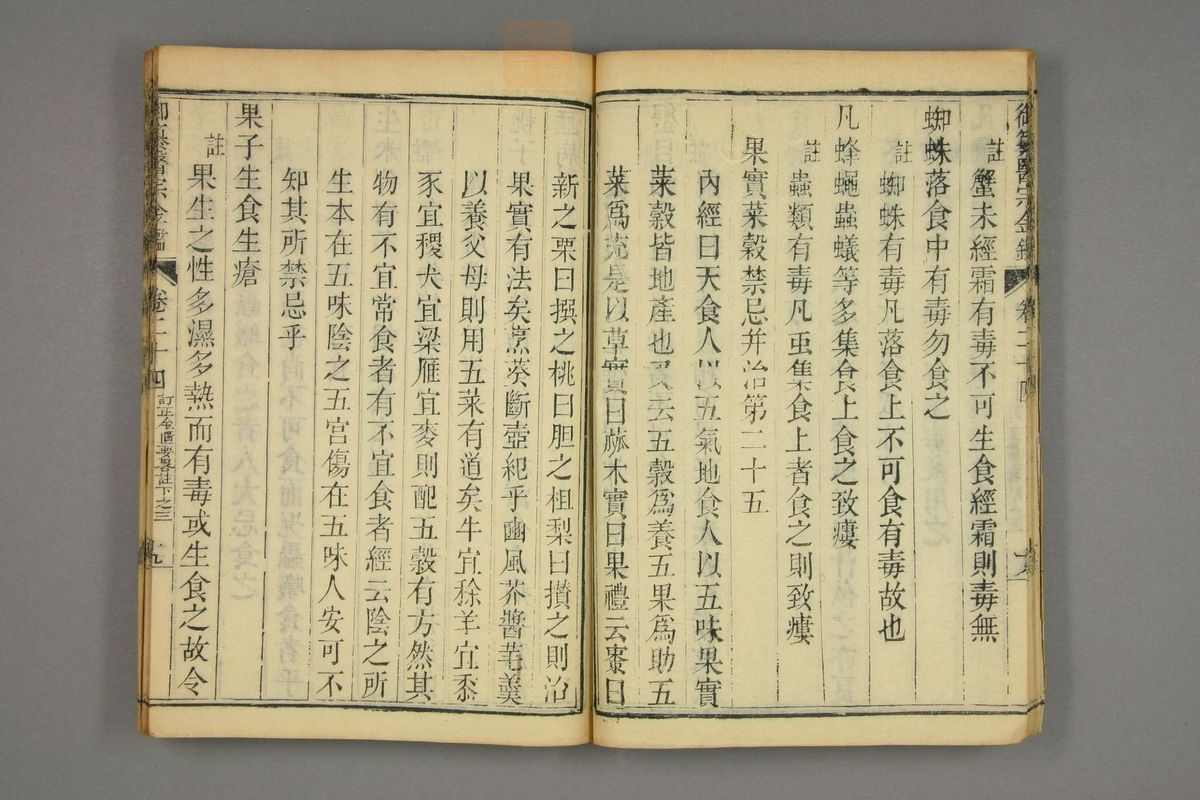 御纂醫宗金鑑 卷二十四
註蟹未經霜有毒不可生食經霜則毒無
蜘蛛落食中有毒勿食之
註蜘蛛有毒凡落食上不可食有毒故也
凡蜂蠅蟲蟻等多集食上食之致瘻
註蟲類有毒凡虫集食上者食之則致瘻
果實菜穀禁忌并治第二十五
內經曰天食人以五氣地食人以五味果實
菜穀皆地產也又云五穀爲養五果爲助五
菜爲充是以草實曰蓏木實曰果禮云棗曰
新之栗曰撰之桃曰胆之柤梨曰攢之則治
果實有法矣烹葵斷壺紀乎豳風芥醬芼羹
以養父母則用五菜有道矣牛宜稌羊宜黍
豕宜稷犬宜梁雁宜麥則配五穀有方然其
物有不宜常食者有不宜食者經云陰之所
生本在五味陰之五宮傷在五味人安可不
知其所禁忌乎
果子生食生瘡
註果生之性多濕多熱而有毒或生食之故令
御纂醫宗金鑑 卷二十四 訂正金匱要畧註下之三 十九